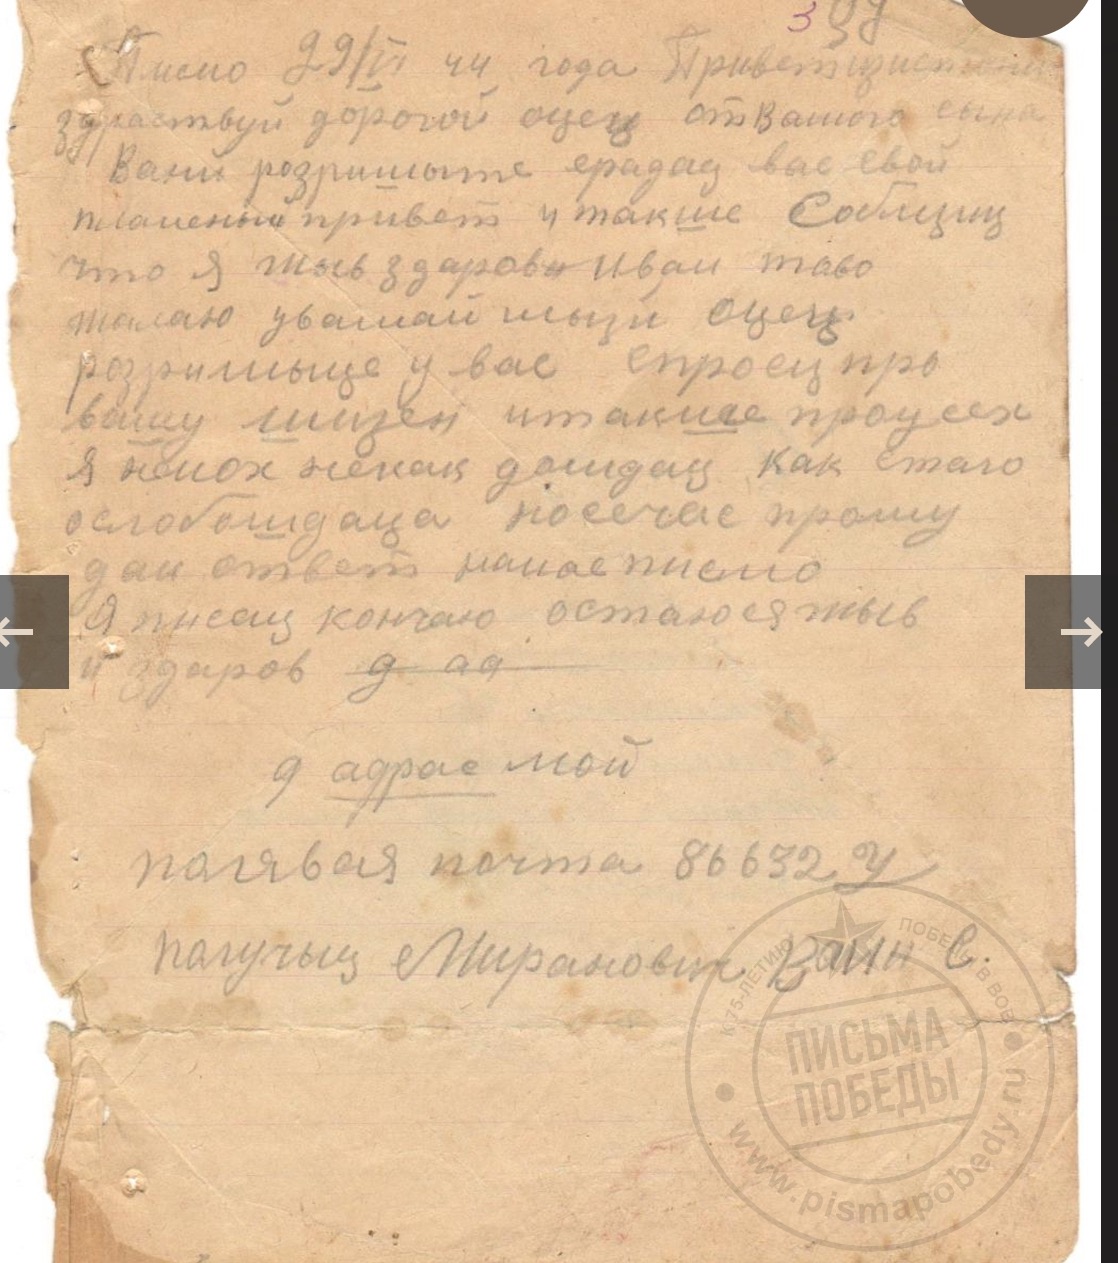 309
Писмо 29/VI 44 года Привет
здраствуй дорогой оцец отвашого сына
Вани розришыте ерадац вас свой
пламеный привет и такше Собщиц
что я жыв здаров и
жалаю уважай оцец
розришыце у вас спросиц про
вашу шизен итакше проусех
Я немох некак дождац как стало
ослобошдаца носечас прошу
дай ответ намае писмо
Я писац кончаю остаюся жыв
и здаров д ад
д адрас мой
палявая почта 86632 У
палучыц Миранович Вани С.
К 75-ЛЕТИЮ ПОБЕДЫ В ВОВ
ПИСЬМА
ПОБЕДЫ
www.pismapobedy.ru